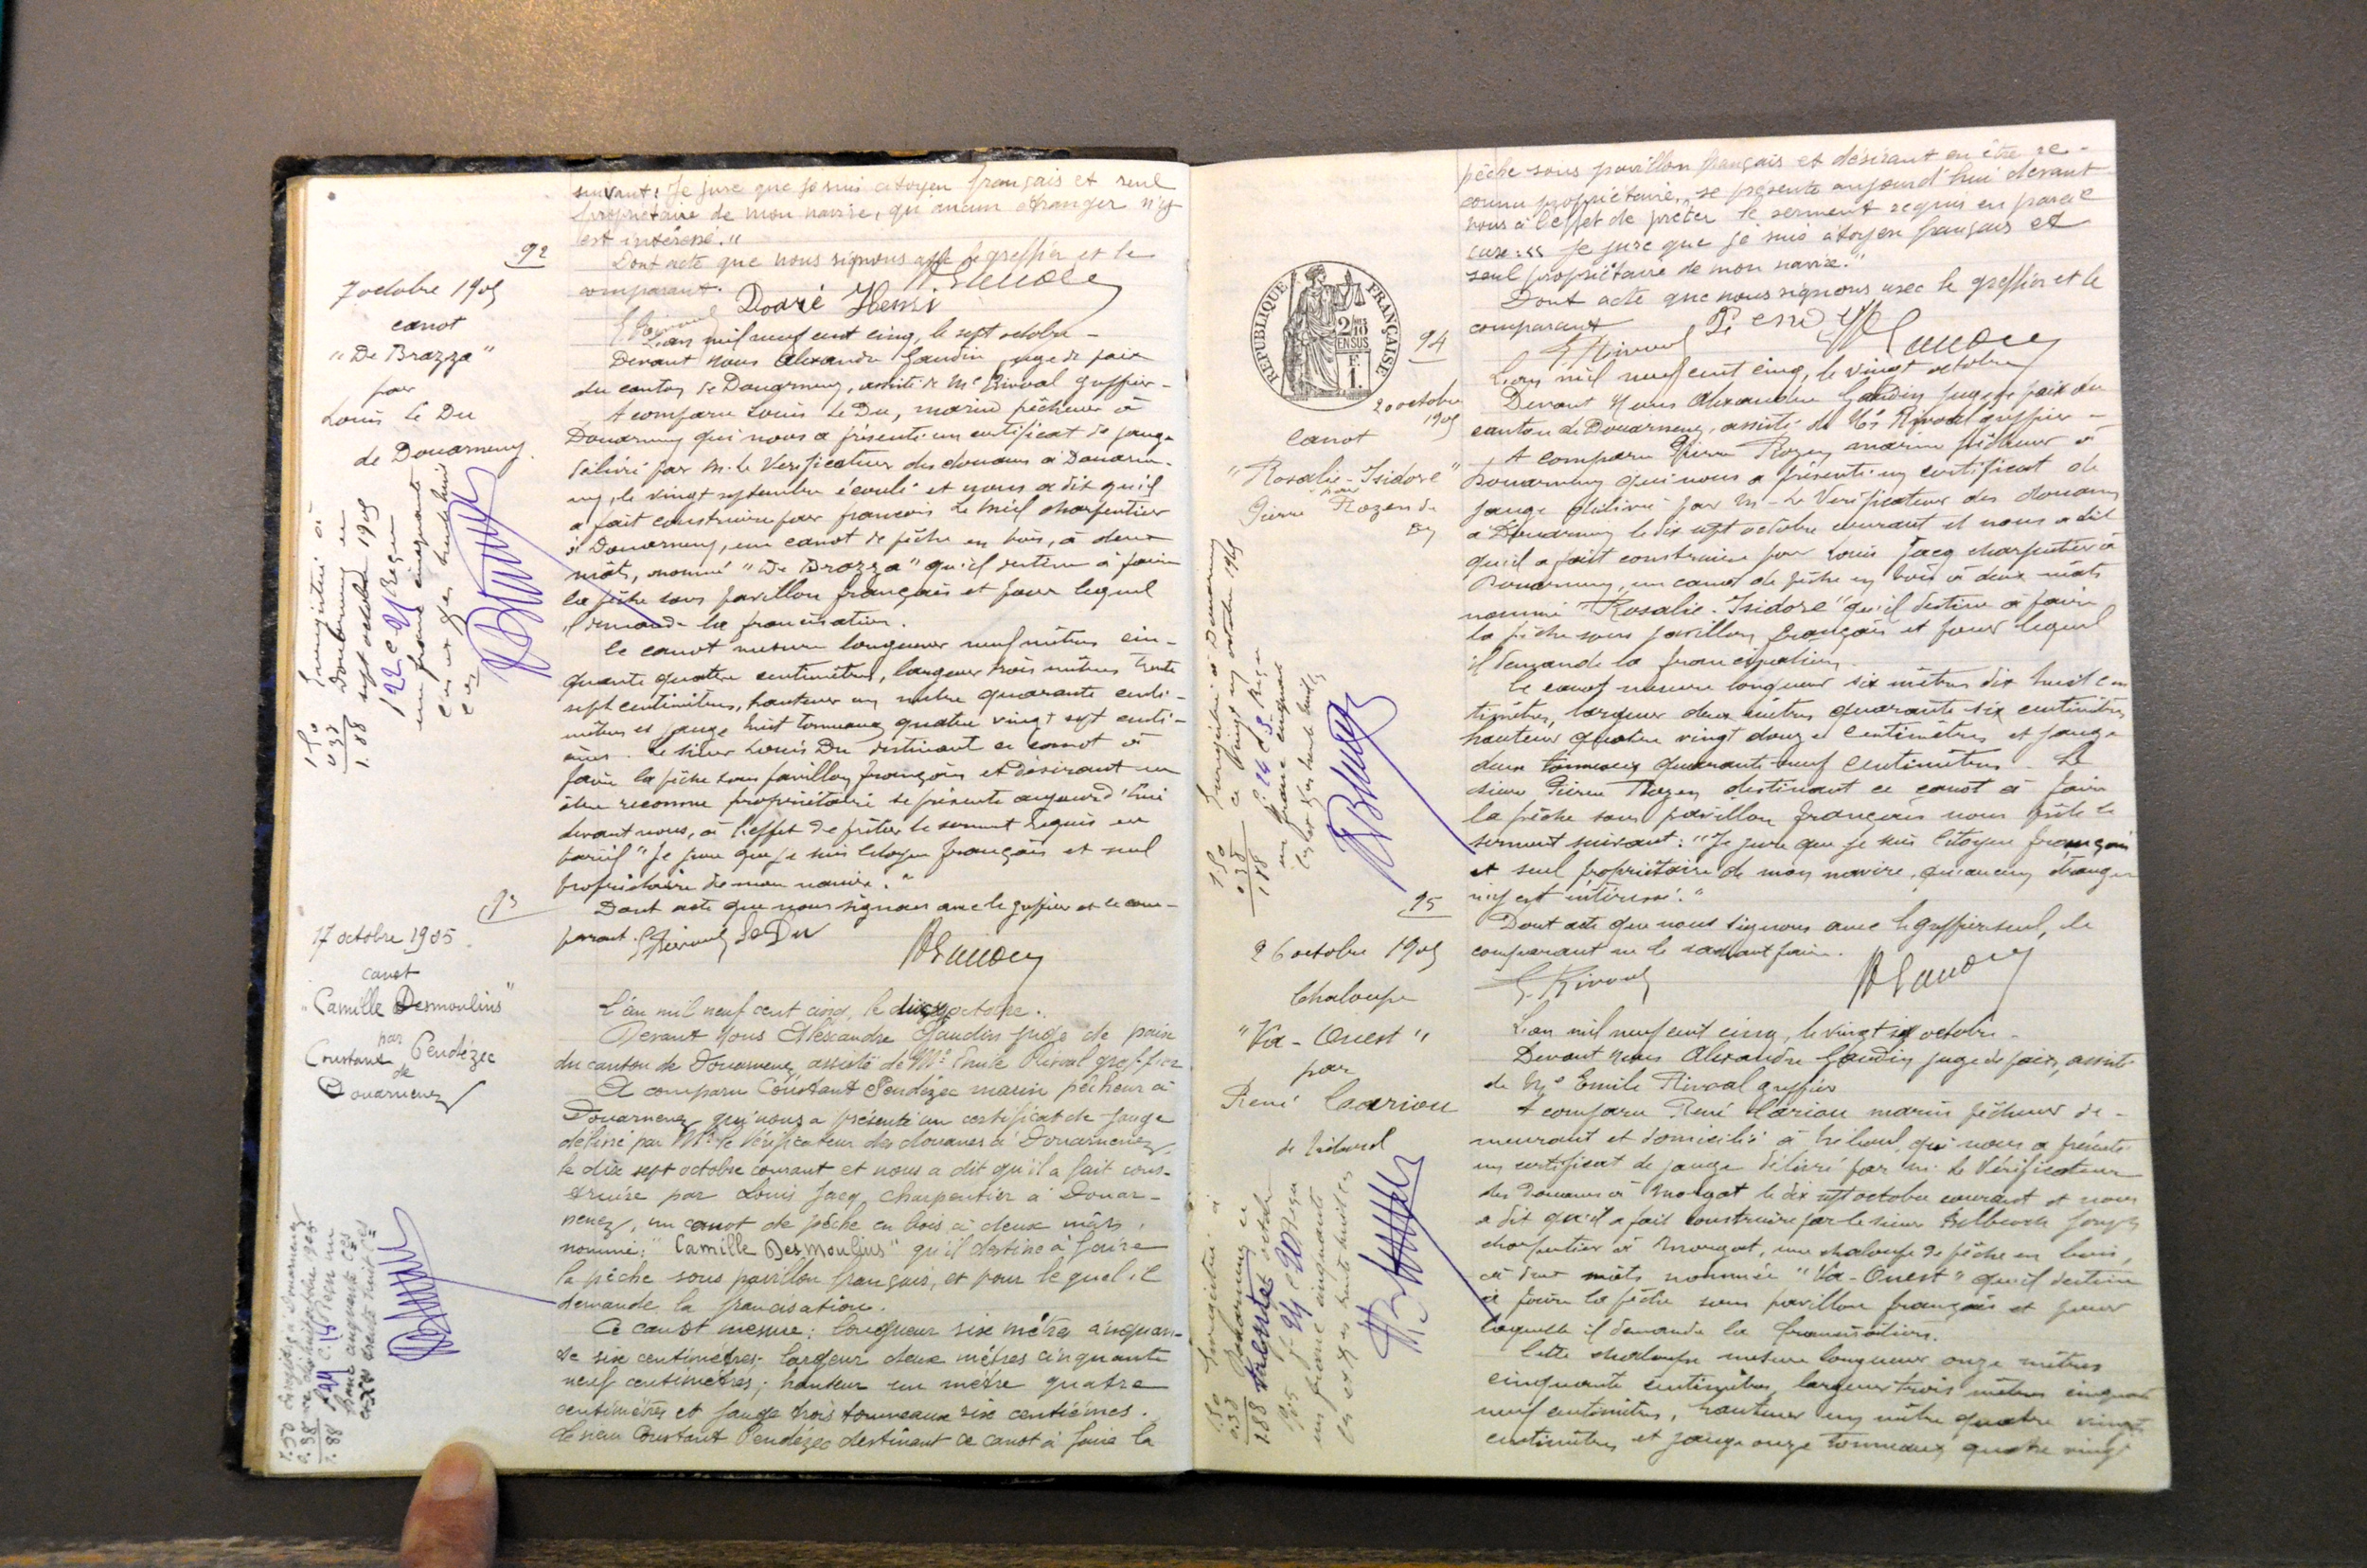 suivant: Je jure que je suis citoyen français et seul
propriétaire de mon navire, qu'aucun étranger n'y
est intéressé."
Dont acte que nous signons avec le greffier et le
comparant.
Doaré Henri
92
7 octobre 1905
canot
"De Brazza"
par
Louis Le Du
de Douarnenez.
L'an mil neuf cent cinq, le sept octobre -
Devant nous Alexandre Gaudin, juge de paix
du canton de Douarnenez, assisté de Me Rivoal greffier -
A comparu Louis Le Du, marin pêcheur à
Douarnenez qui nous a présenté un certificat de jauge
délivré par M. le Vérificateur des douanes à Douarne-
nez, le vingt septembre écoulé et nous a dit qu'il
a fait construire par françois Le charpentier
à Douarnenez, un canot de pêche en bois, à deux
mâts, nommé "De Brazza" qu'il destine à faire
la pêche sous pavillon français et pour lequel
il demande la francisation.
Ce canot mesure longueur neuf mètres cin-
quante quatre centimètres, largeur trois mètres trente
sept centimètres, hauteur un mètre quarante centi-
mètres et jauge huit tonneaux quatre vingt sept centi-
èmes. Le sieur Louis Du destinant ce canot à
faire la pêche sous pavillon français et désirant en
être reconnu propriétaire se présente aujourd'hui
devant nous, à l'effet de prêter le serment requis en
pareil "Je jure que je suis citoyen français et seul
propriétaire de mon navire."
Dont acte que nous signons avec le greffier et le com-
parant. E Rivoal Le Du
Enregistré à
Douarnenez ce
sept octobre 1905
122 c 21 Reçu
un franc cinquante
1.50
0.38
1.88
93
17 octobre 1905.
canot
"Camille Desmoulins"
par
Constant Pendézec
de
Douarnenez
L'an mil neuf cent cinq, le octobre.
Devant Nous Alexandre Gaudin juge de paix
du canton de Douarnenez, assisté de Me Emile Rivoal greffier
A comparu Constant Pendézec marin pêcheur à
Douarnenez qui nous a présenté un certificat de jauge
délivré par Mr le Vérificateur des douanes à Douarnenez
le dix sept octobre courant et nous a dit qu'il a fait cons-
truire par Louis Jacq, charpentier à Douar-
nenez, un canot de pêche en bois à deux mâts,
nommé: "Camille Desmoulins" qu'il destine à faire
la pêche sous pavillon français, et pour lequel il
demande la francisation.
Ce canot mesure: longueur six mètres cinquan-
te six centimètres; largeur deux mètres cinquante
neuf centimètres; hauteur un mètre quatre
centimètres et jauge trois tonneaux six centièmes.
Le sieur Constant Pendézec destinant ce canot à faire la
1.50
0.38
1.88
pêche sous pavillon français et désirant en être re-
connu propriétaire, se présente aujourd'hui devant
nous à l'effet de prêter le serment requis en pareil
cas: "Je jure que je suis citoyen français et
seul propriétaire de mon navire."
Dont acte que nous signons avec le greffier et le
comparant
RÉPUBLIQUE FRANÇAISE
2/10 EN SUS
F. 1.
94
20 octobre
1905
Canot
"Rosalie-Isidore"
par
Pierre Rozen de
Dz
L'an mil neuf cent cinq, le vingt octobre
Devant Nous Alexandre Gaudin juge de paix du
canton de Douarnenez, assisté de Me Rivoal greffier -
A comparu Pierre Rozen marin pêcheur à
Douarnenez qui nous a présenté un certificat de
jauge délivré par M. Le Vérificateur des douanes
à Douarnenez le dix sept octobre courant et nous a dit
qu'il a fait construire par Louis Jacq charpentier à
Douarnenez, un canot de pêche en bois à deux mâts
nommé "Rosalie-Isidore" qu'il destine à faire
la pêche sous pavillon français et pour lequel
il demande la francisation.
Ce canot mesure longueur six mètres dix huit cen
timètres, largeur deux mètres quarante six centimètres
hauteur quatre vingt douze centimètres et jauge
deux tonneaux quarante neuf centimètres. Le
sieur Pierre Rozen destinant ce canot à faire
la pêche sous pavillon français nous prête le
serment suivant: "Je jure que je suis citoyen français
et seul propriétaire de mon navire, qu'aucun étranger
n'y est intéressé."
Dont acte que nous signons avec le greffier seul, le
comparant ne le sachant faire.
E. Rivoal
1.50
0.38
1.88
95
26 octobre 1905
Chaloupe
"Va-Ouest"
par
René Cariou
de
L'an mil neuf cent cinq, le vingt six octobre -
Devant Nous Alexandre Gaudin juge de paix, assisté
de Me Emile Rivoal greffier
A comparu René Cariou marin pêcheur de-
meurant et domicilié à qui nous a présenté
un certificat de jauge délivré par M. Le Vérificateur
des Douanes à Morgat le dix sept octobre courant et nous
a dit qu'il a fait construire par le sieur Belbeoch Joseph
charpentier à Morgat, une chaloupe de pêche en bois,
à deux mâts nommée "Va-Ouest" qu'il destine
à faire la pêche sous pavillon français et pour
laquelle il demande la francisation.
Cette chaloupe mesure longueur onze mètres
cinquante centimètres, largeur trois mètres cinquante
neuf centimètres, hauteur un mètre quatre vingt
centimètres et jauge onze tonneaux quatre vingt
1.50
0.38
1.88